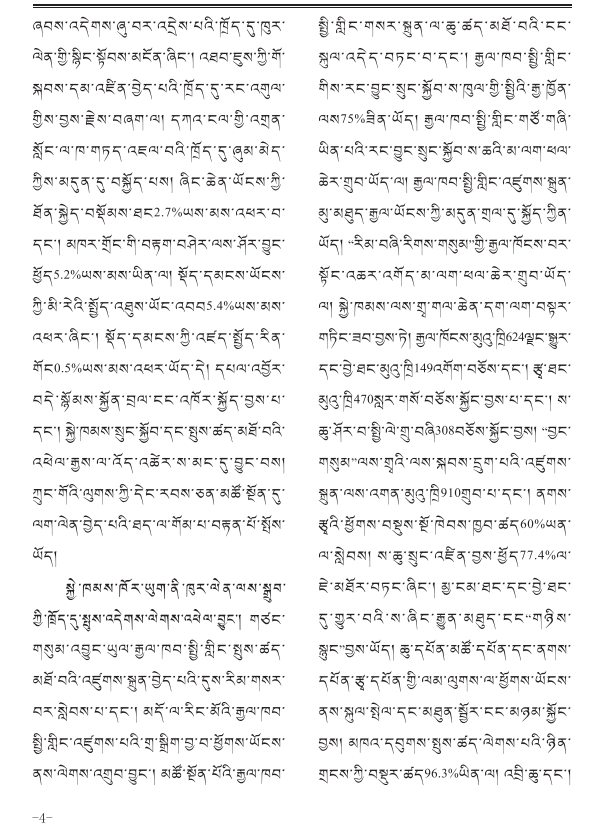 ཞབས་འདེགས་ཞུ་བར་འདྲེས་པའི་ཁྲོད་དུ་ཁུར་
ལེན་གྱི་སྙིང་སྟོབས་མངོན་ཞིང་། འཐབ་ཇུས་ཀྱི་གོ་
སྐབས་དམ་འཛིན་བྱེད་པའི་ཁྲོད་དུ་རང་འགུལ་
གྱིས་བྱས་རྗེས་བཞག་ལ། དཀའ་ངལ་གྱི་འགྲན་
སློང་ལ་ཁ་གཏད་འཇལ་བའི་ཁྲོད་དུ་ཞུམ་མེད་
ཀྱིས་མདུན་དུ་བསྐྱོད་པས། ཞིང་ཆེན་ཡོངས་ཀྱི་
ཐོན་སྐྱེད་བསྡོམས་ཐང2.7%ཡས་མས་འཕར་བ་
དང་། མཁར་གྲོང་གི་བརྟག་བཤེར་ལས་ཤོར་བྱུང་
ཕྱོད5.2%ཡས་མས་ཡིན་ལ། སྡོད་དམངས་ཡོངས་
ཀྱི་མི་རེའི་སྤྱོད་འཐུས་ཡོང་འབབ5.4%ཡས་མས་
འཕར་ཞིང་། སྡོད་དམངས་ཀྱི་འཛད་སྤྱོད་རིན་
གོང0.5%ཡས་མས་འཕར་ཡོད་དེ། དཔལ་འབྱོར་
བདེ་སྙོམས་སྐྱོན་བྲལ་ངང་འཁོར་སྐྱོད་བྱས་པ་
དང་། སྐྱེ་ཁམས་སྲུང་སྐྱོབ་དང་སྤུས་ཚད་མཐོ་བའི་
འཕེལ་རྒྱས་ལ་འོད་འཆེར་ས་མང་དུ་བྱུང་བས།
ཀྲུང་གོའི་ལུགས་ཀྱི་དེང་རབས་ཅན་མཚོ་སྔོན་དུ་
ལག་ལེན་བྱེད་པའི་ཐད་ལ་གོམ་པ་བརྟན་པོ་སྤོས་
ཡོད།
སྐྱེ་ཁམས་ཁོར་ཡུག་ནི་ཁུར་ལེན་ལས་སྒྲུབ་
ཀྱི་ཁྲོད་དུ་སྤུས་འདེགས་ལེགས་འཕེལ་བྱུང་། གཙང་
གསུམ་འབྱུང་ཡུལ་རྒྱལ་ཁབ་སྤྱི་གླིང་སྤུས་ཚད་
མཐོ་བའི་འཛུགས་སྐྲུན་བྱེད་པའི་དུས་རིམ་གསར་
བར་སླེབས་པ་དང་། མདོ་ལ་རིང་མོའི་རྒྱལ་ཁབ་
སྤྱི་གླིང་འཛུགས་པའི་གྲ་སྒྲིག་བྱ་བ་ཕྱོགས་ཡོངས་
ནས་ལེགས་འགྲུབ་བྱུང་། མཚོ་སྔོན་པོའི་རྒྱལ་ཁབ་
སྤྱི་གླིང་གསར་སྐྲུན་ལ་ཆུ་ཚད་མཐོ་བའི་ངང་
སྐུལ་འདེད་བཏང་བ་དང་། རྒྱལ་ཁབ་སྤྱི་གླིང་
གིས་རང་བྱུང་སྲུང་སྐྱོབ་ས་ཁུལ་གྱི་སྤྱིའི་རྒྱ་ཁྱོན་
ལས75%ཟིན་ཡོད། རྒྱལ་ཁབ་སྤྱི་གླིང་གཙོ་གཞི་
ཡིན་པའི་རང་བྱུང་སྲུང་སྐྱོབ་ས་ཆའི་མ་ལག་ཕལ་
ཆེར་གྲུབ་ཡོད་ལ། རྒྱལ་ཁབ་སྤྱི་གླིང་འཛུགས་སྐྲུན་
མུ་མཐུད་རྒྱལ་ཡོངས་ཀྱི་མདུན་གྲལ་དུ་སྐྱོད་ཀྱིན་
ཡོད། “རིམ་བཞི་རིགས་གསུམ”གྱི་རྒྱལ་ཁོངས་བར་
སྟོང་འཆར་འགོད་མ་ལག་ཕལ་ཆེར་གྲུབ་ཡོད་
ལ། སྐྱེ་ཁམས་ལས་གྲྭ་གལ་ཆེན་དག་ལག་བསྟར་
གཏིང་ཟབ་བྱས་ཏེ། རྒྱལ་ཁོངས་མུའུ་ཁྲི624ལྗང་སྒྱུར་
དང་བྱེ་ཐང་མུའུ་ཁྲི149འགོག་བཅོས་དང་། རྩྭ་ཐང་
མུའུ་ཁྲི470སླར་གསོ་བཅོས་སྐྱོང་བྱས་པ་དང་། ས་
ཆུ་ཤོར་བ་སྤྱི་ལེ་གྲུ་བཞི308བཅོས་སྐྱོང་བྱས། “བྱང་
གསུམ”ལས་གྲྭའི་ལས་སྐབས་དྲུག་པའི་འཛུགས་
སྐྲུན་ལས་འགན་མུའུ་ཁྲི910གྲུབ་པ་དང་། ནགས་
རྩྭའི་ཕྱོགས་བསྡུས་སྔོ་ཁེབས་ཁྱབ་ཚད60%ཡན་
ལ་སླེབས། ས་ཆུ་སྲུང་འཛིན་བྱས་ཕྱོད77.4%ལ་
ཇེ་མཐོར་བཏང་ཞིང་། མྱ་ངམ་ཐང་དང་བྱེ་ཐང་
དུ་གྱུར་བའི་ས་ཞིང་རྒྱུན་མཐུད་ངང“གཉིས་
སྐུང”བྱས་ཡོད། ཆུ་དཔོན་མཚོ་དཔོན་དང་ནགས་
དཔོན་རྩྭ་དཔོན་གྱི་ལམ་ལུགས་ལ་ཕྱོགས་ཡོངས་
ནས་སྐུལ་སྤེལ་དང་མཐུན་སྦྱོར་ངང་མཉམ་སྐྱོང་
བྱས། མཁའ་དབུགས་སྤུས་ཚད་ལེགས་པའི་ཉིན་
གྲངས་ཀྱི་བསྡུར་ཚད96.3%ཡིན་ལ། འབྲི་ཆུ་དང་།
-4-